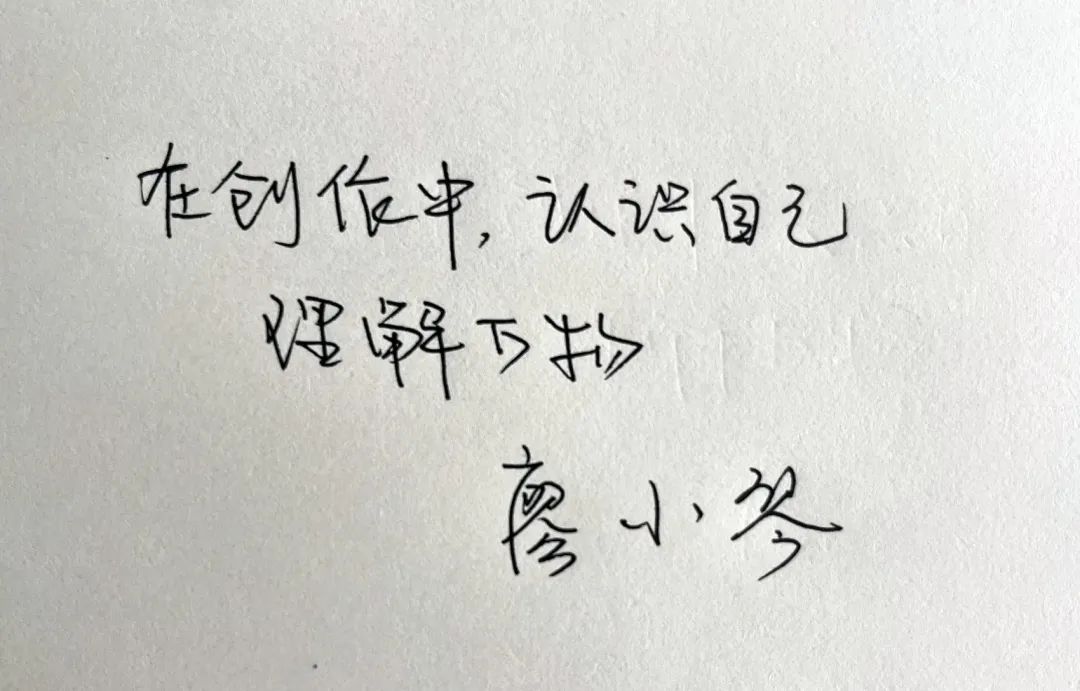 在创作中，认识自己
理解万物
廖小琴